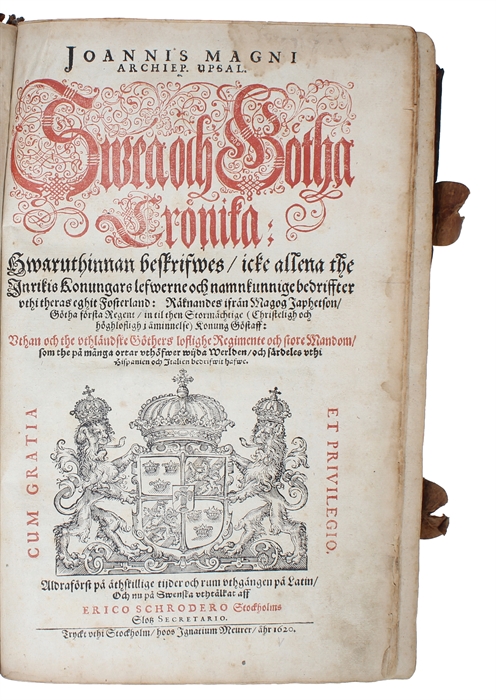 JOANNIS MAGNI
ARCHIEP. UPSAL.
Swea och Götha
Crönika:
Hwaruthinnan beskrifwes / icke allena the
Inrikis Konungars lefwerne och namnkunnige bedriffter
vthi theras eghit Fosterland: Räknandes ifrån Magog Japhetson /
Götha första Regent / in til then Stormächtige (Christeligh och
höghlofligh i åminnelse) Konung Göstaff:
Vthan och the vthländske Göthers loflighe Regimente och store Mandom /
som the på många ortar vthöfwer wijda Werlden / och särdeles vthi
Hispanien och Italien bedrifwit hafwe.
CUM GRATIA
ET PRIVILEGIO.
Aldraförst på åthskillige tijder och rum vthgången på Latin /
Och nu på Swenska vthtålkat aff
ERICO SCHRODERO Stockholms
Slotz SECRETARIO.
Tryckt vthi Stockholm / hoos Ignatium Meurer / åhr 1620.